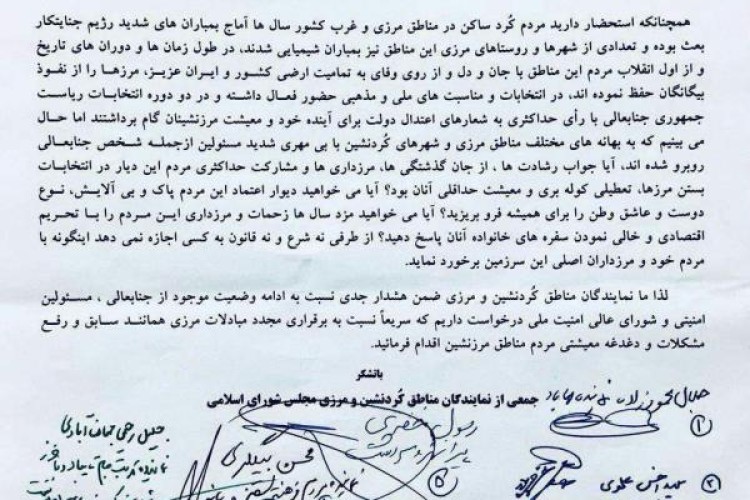 همچنانکه استحضار دارید مردم کُرد ساکن در مناطق مرزی و غرب کشور سال ها آماج بمباران های شدید رژیم جنایتکار
بعث بوده و تعدادی از شهرها و روستاهای مرزی این مناطق نیز بمباران شیمیایی شدند، در طول زمان ها و دوران های تاریخ
و از اول انقلاب مردم این مناطق با جان و دل و از روی وفای به تمامیت ارضی کشور و ایران عزیز، مرزها را از نفوذ
بیگانگان حفظ نموده اند، در انتخابات و مناسبت های ملی و مذهبی حضور فعال داشته و در دو دوره انتخابات ریاست
جمهوری جنابعالی با رأی حداکثری به شعارهای اعتدال دولت برای آینده خود و معیشت مرزنشینان گام برداشتند اما حال
می بینیم که به بهانه های مختلف مناطق مرزی و شهرهای کُردنشین با بی مهری شدید مسئولین ازجمله شخص جنابعالی
روبرو شده اند، آیا جواب رشادت ها ، از جان گذشتگی ها، مرزداری ها و مشارکت حداکثری مردم این دیار در انتخابات
بستن مرزها، تعطیلی کوله بری و معیشت حداقلی آنان بود؟ آیا می خواهید دیوار اعتماد این مردم پاک و بی آلایش، نوع
دوست و عاشق وطن را برای همیشه فرو بریزید؟ آیا می خواهید مزد سال ها زحمات و مرزداری این مردم را با تحریم
اقتصادی و خالی نمودن سفره های خانواده آنان پاسخ دهید؟ از طرفی نه شرع و نه قانون به کسی اجازه نمی دهد اینگونه با
مردم خود و مرزداران اصلی این سرزمین برخورد نماید.
لذا ما نمایندگان مناطق کُردنشین و مرزی ضمن هشدار جدی نسبت به ادامه وضعیت موجود از جنابعالی ، مسئولین
امنیتی و شورای عالی امنیت ملی درخواست داریم که سریعاً نسبت به برقراری مجدد مبادلات مرزی همانند سابق و رفع
مشکلات و دغدغه معیشتی مردم مناطق مرزنشین اقدام فرمائید.
باتشکر
جمعی از نمایندگان مناطق کُردنشین و مرزی مجلس شورای اسلامی
جلال محمودزاده
رسول خضری
محسن بیگلری
۱
۲
۵